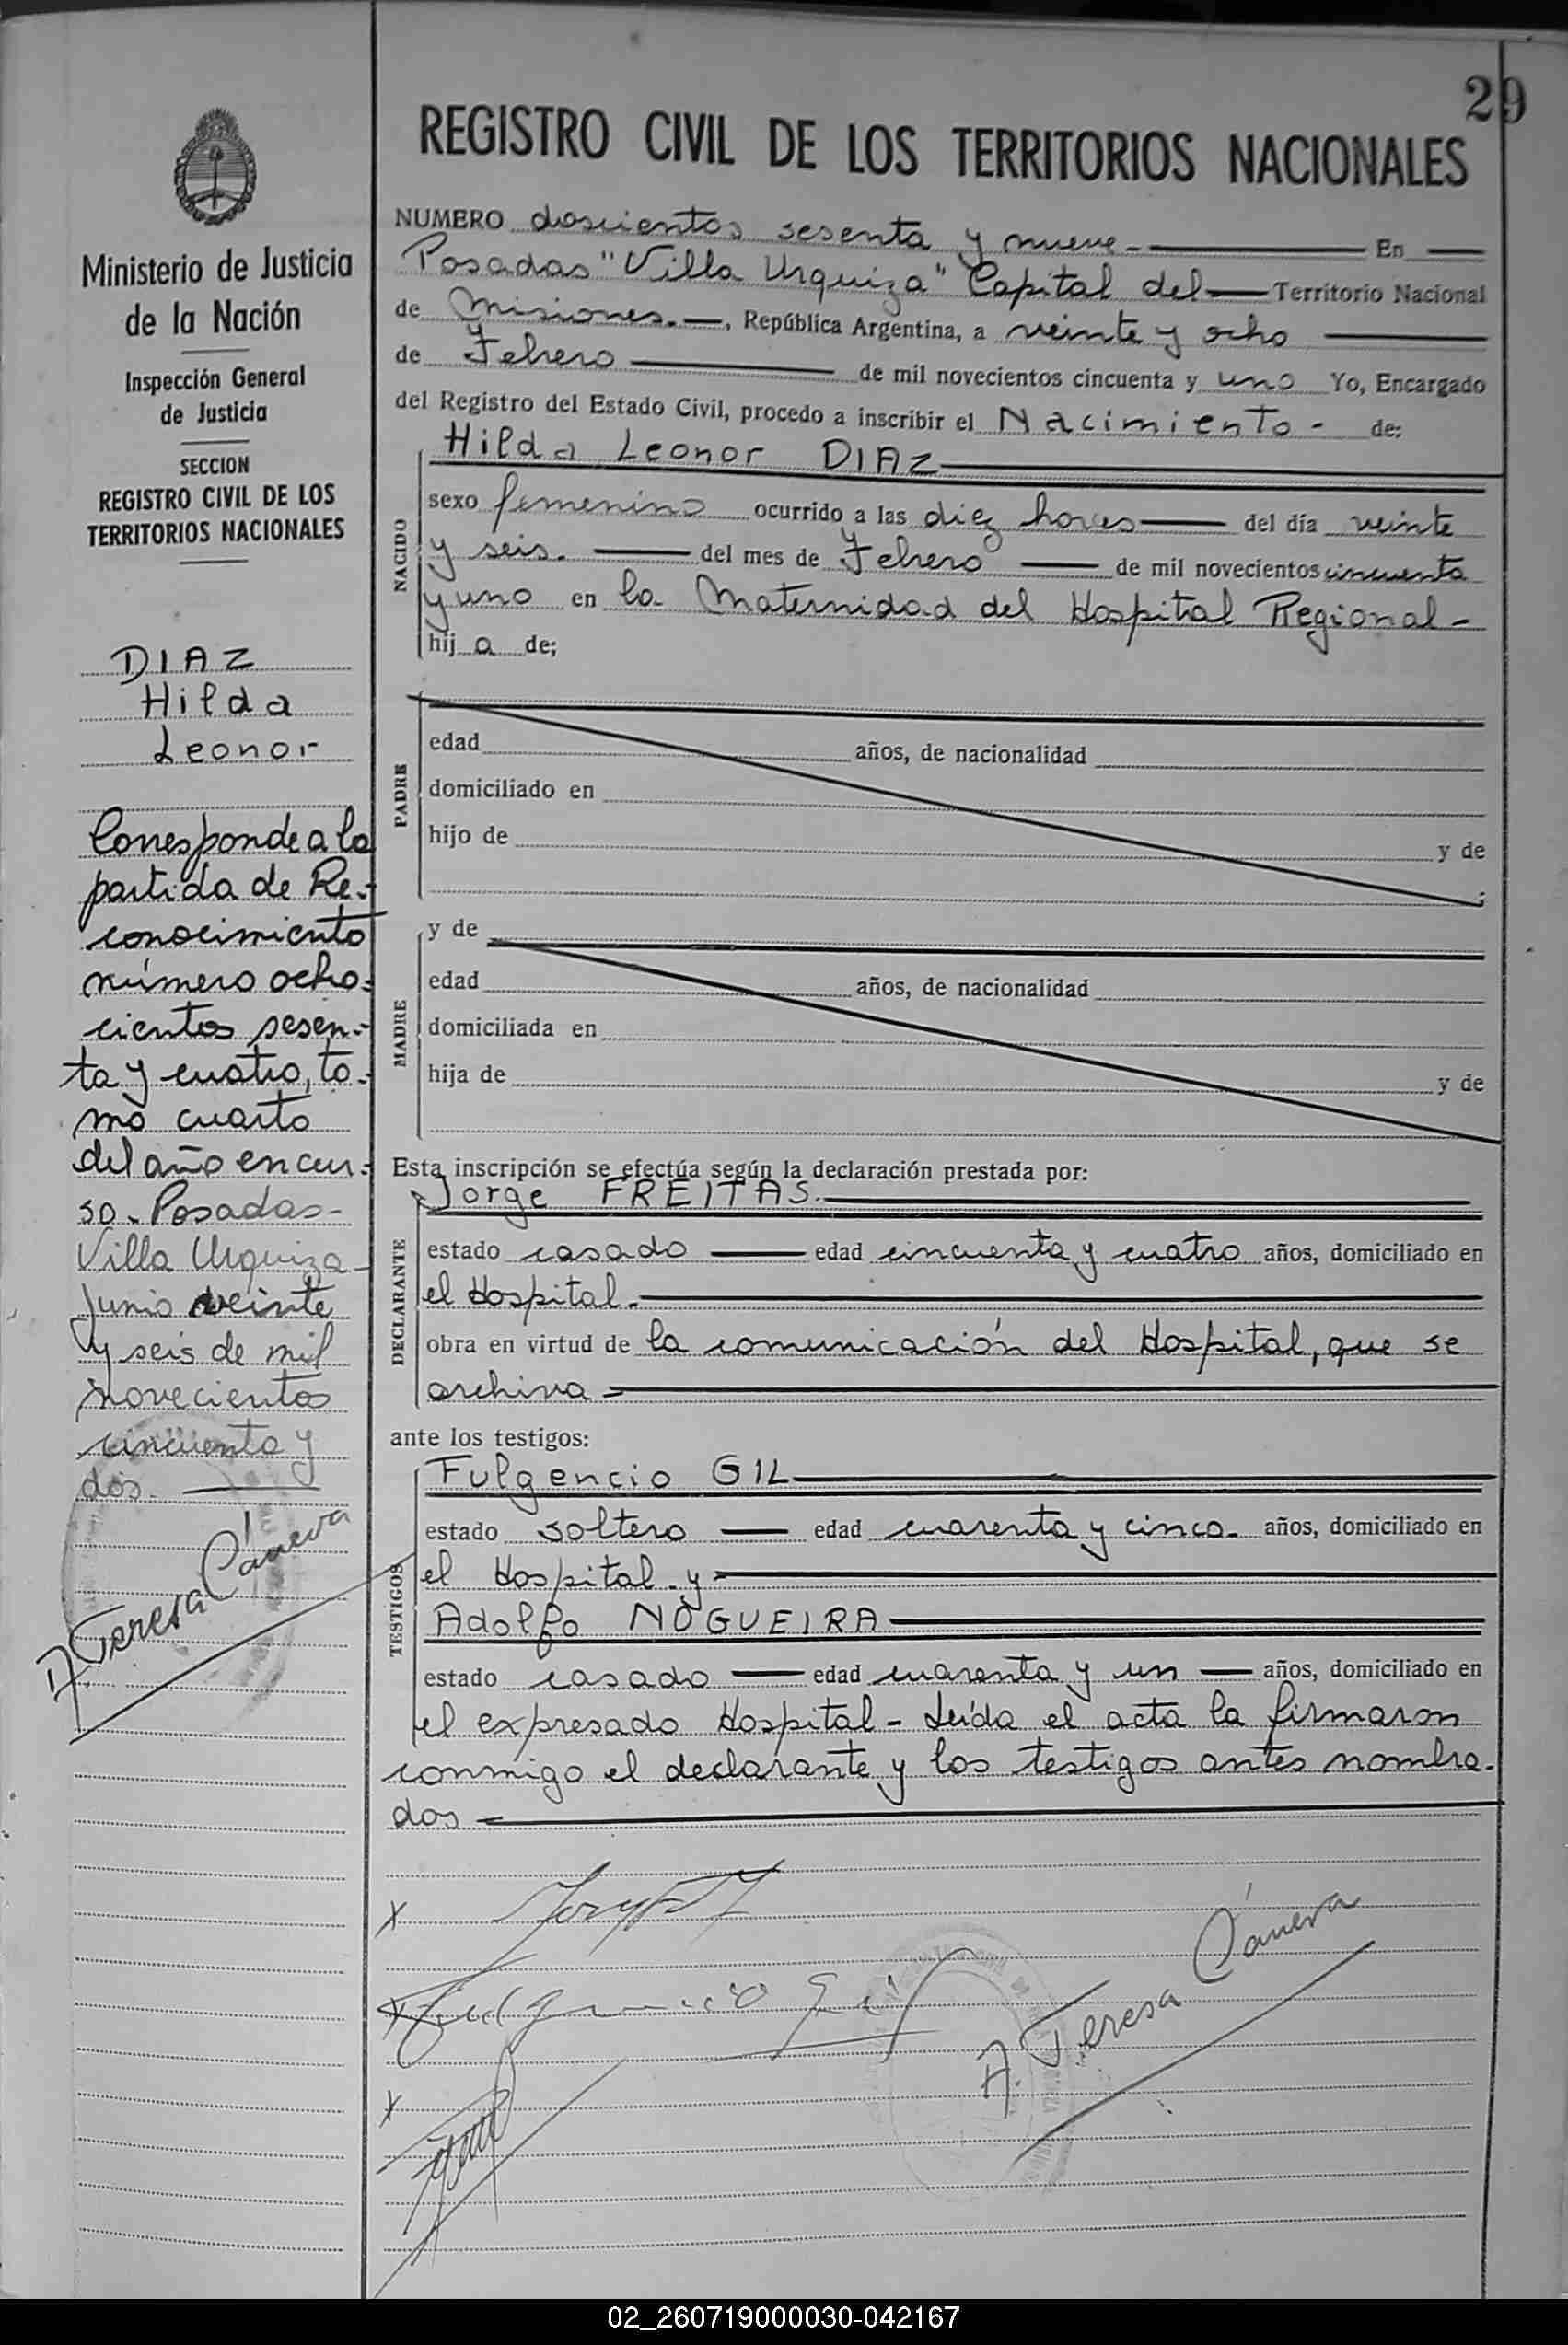 29
REGISTRO CIVIL DE LOS TERRITORIOS NACIONALES
Ministerio de Justicia
de la Nación
Inspección General
de Justicia
SECCION
REGISTRO CIVIL DE LOS
TERRITORIOS NACIONALES
DIAZ
Hilda
Leonor
Corresponde a la
partida de Re-
conocimiento
número ocho-
cientos sesen-
ta y cuatro, to-
mo cuarto
del año en cur-
so. Posadas-
Villa Urquiza-
Junio veinte
y seis de mil
novecientos
cincuenta y
dos.
A. Teresa Cáneva
NUMERO doscientos sesenta y nueve.- En
Posadas "Villa Urquiza" Capital del Territorio Nacional
de Misiones.-, República Argentina, a veinte y ocho
de Febrero de mil novecientos cincuenta y uno Yo, Encargado
del Registro del Estado Civil, procedo a inscribir el Nacimiento- de:
NACIDO
Hilda Leonor DIAZ
sexo femenino ocurrido a las diez horas del día veinte
y seis. del mes de Febrero de mil novecientos cincuenta
y uno en la Maternidad del Hospital Regional-
hij a de;
PADRE
edad años, de nacionalidad
domiciliado en
hijo de y de
;
MADRE
y de
edad años, de nacionalidad
domiciliada en
hija de y de
Esta inscripción se efectúa según la declaración prestada por:
DECLARANTE
Jorge FREITAS.
estado casado edad cincuenta y cuatro años, domiciliado en
el Hospital.
obra en virtud de la comunicación del Hospital, que se
archiva
ante los testigos:
TESTIGOS
Fulgencio GIL
estado soltero edad cuarenta y cinco. años, domiciliado en
el Hospital. y
Adolfo NOGUEIRA
estado casado edad cuarenta y un años, domiciliado en
el expresado Hospital- Leída el acta la firmaron
conmigo el declarante y los testigos antes nombra-
dos
x
x Fulgencio Gil
A. Teresa Cáneva
x
02_260719000030-042167